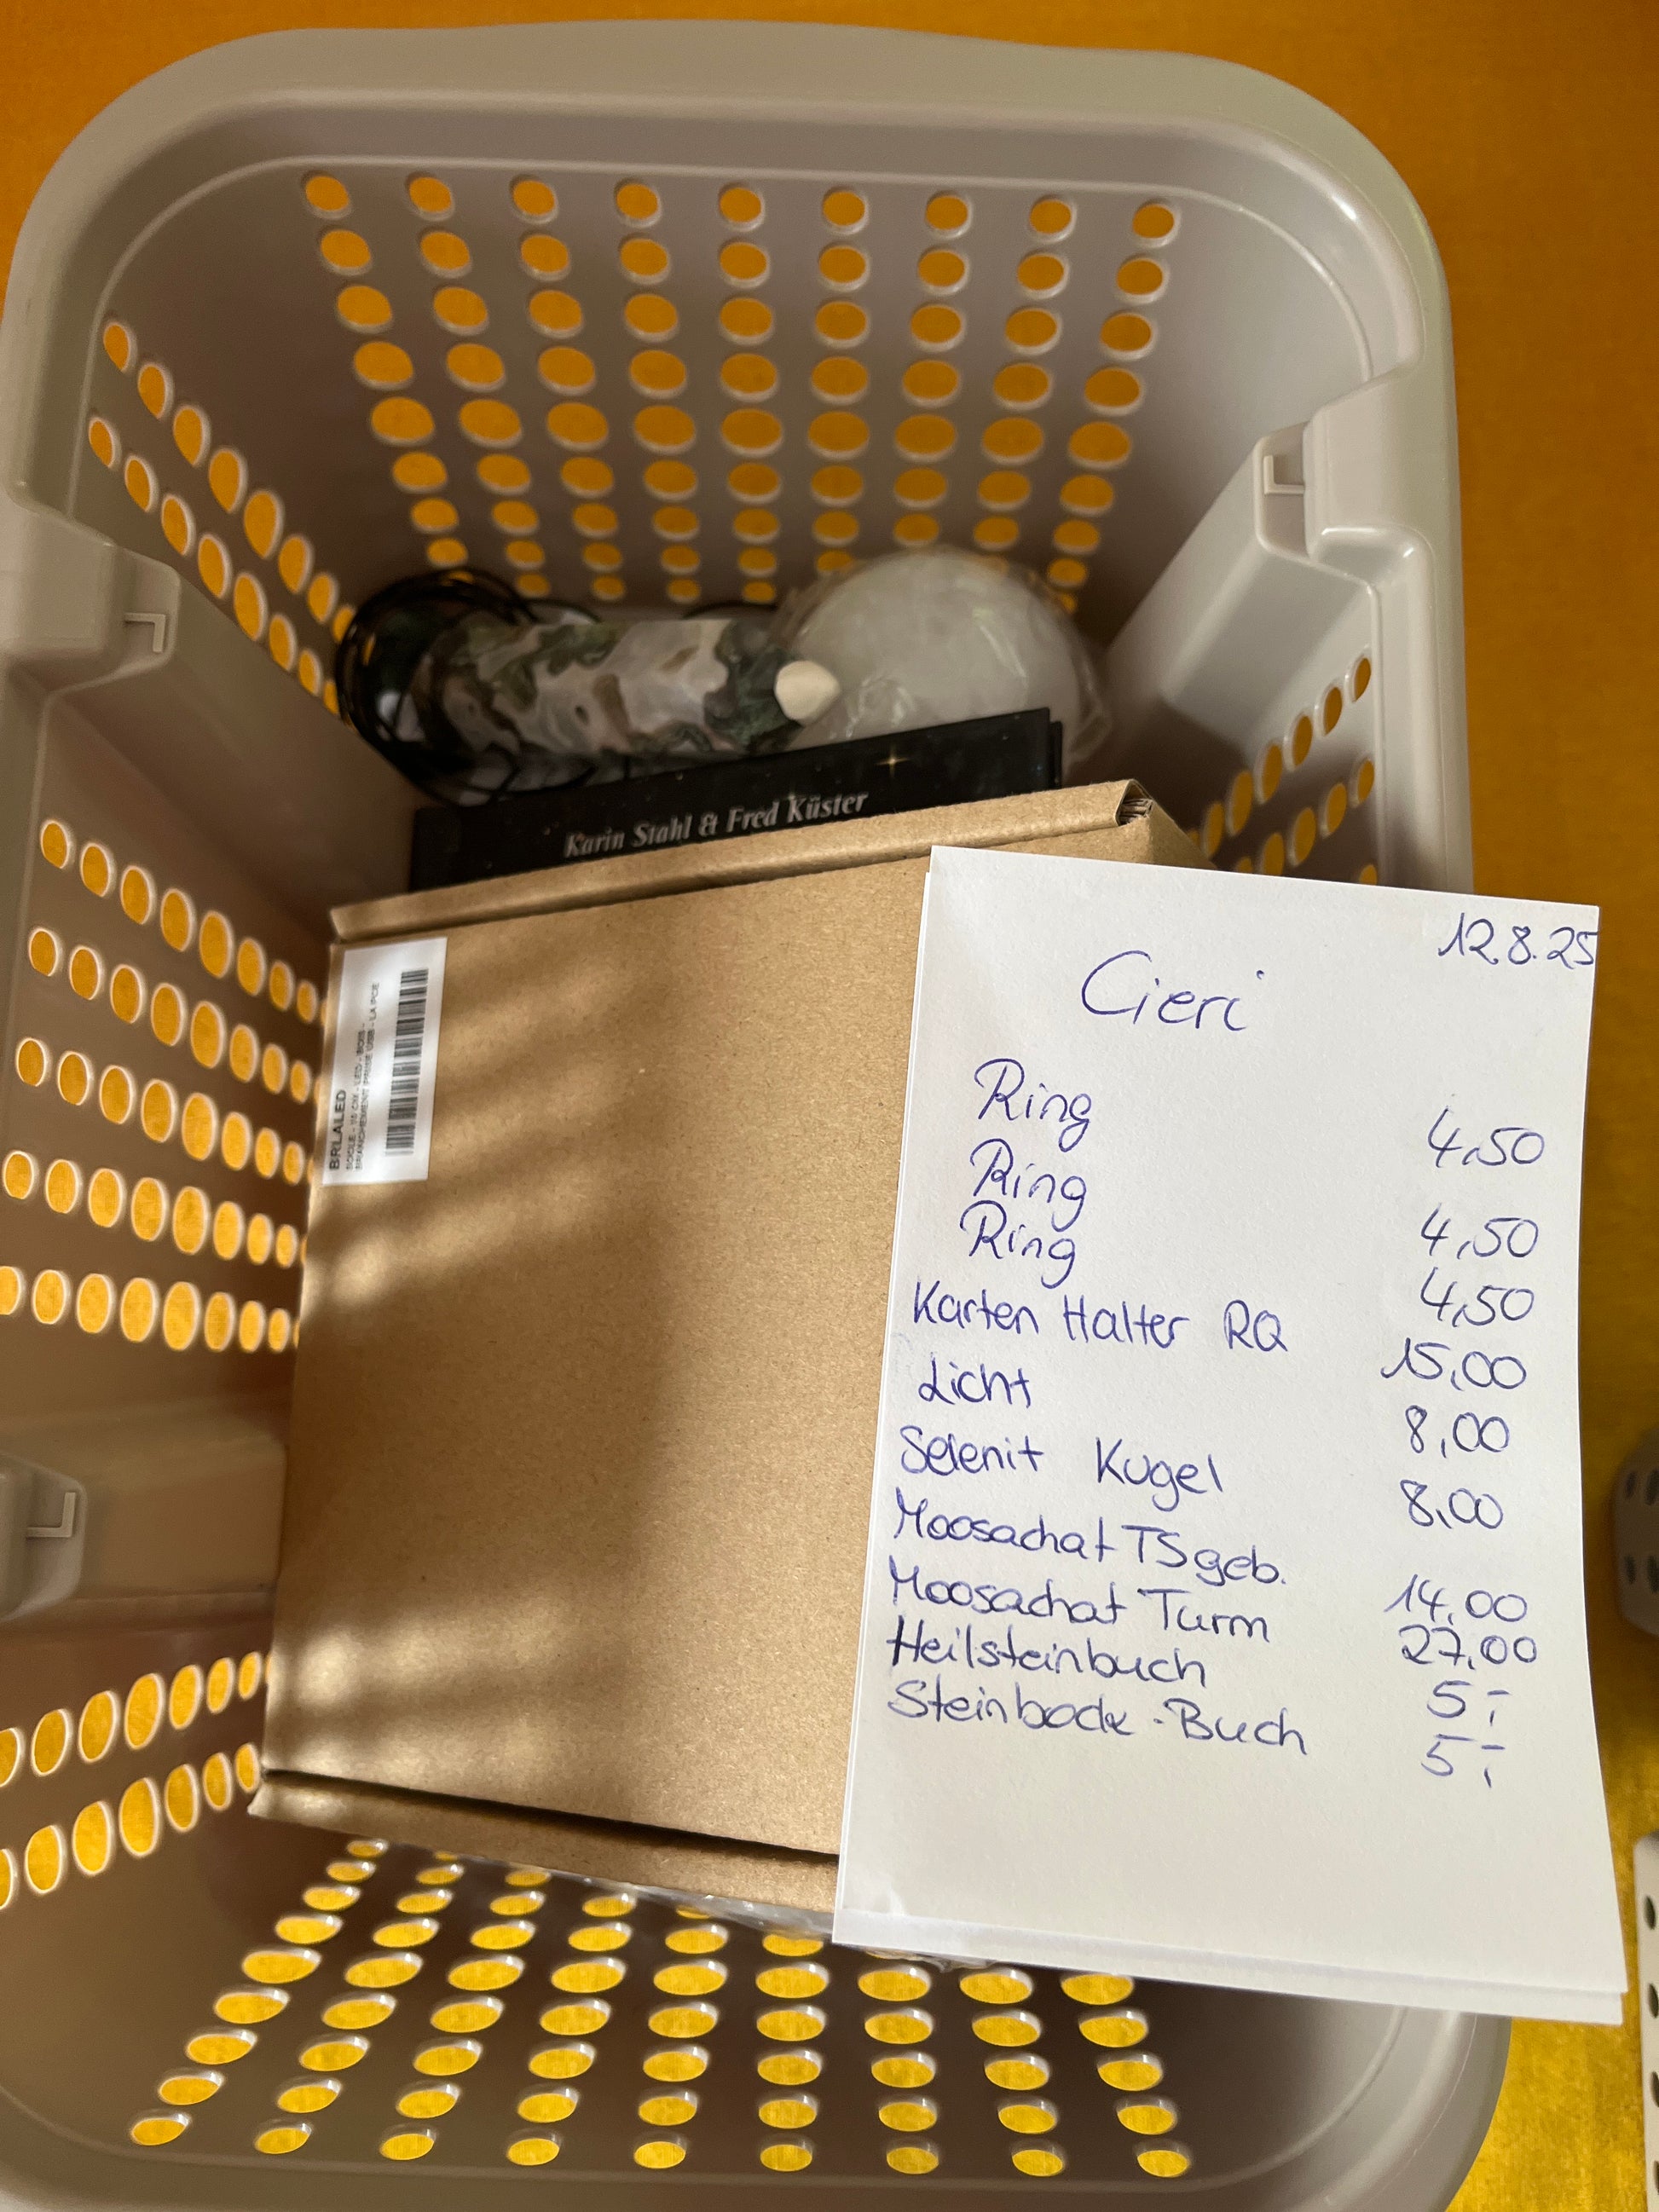 Karin Stahl & Fred Küster
BRLALED
12.8.25
Cieri
Ring 4,50
Ring 4,50
Ring 4,50
Karten Halter RQ 15,00
Licht 8,00
Selenit Kugel 8,00
Moosachat TS geb. 14,00
Moosachat Turm 27,00
Heilsteinbuch 5,-
Steinbock-Buch 5,-